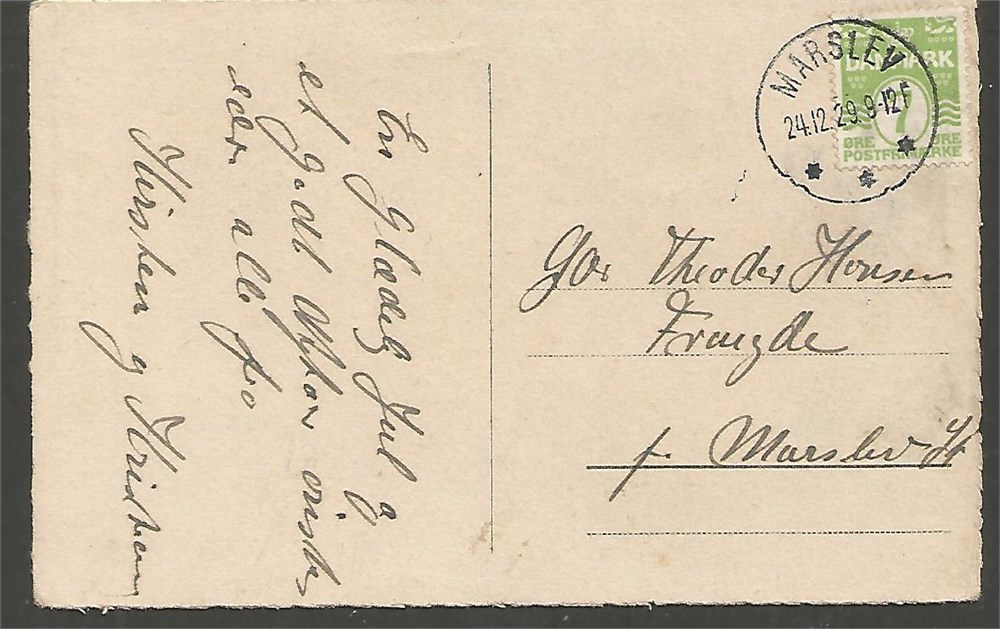 En Glædelig Jul og
et godt Nytaar ønskes
eder alle fra
Kirsten og Kristian
MARSLEV
24.12.29.9-12F
DANMARK
7
ØRE ØRE
POSTFRIMÆRKE
Theodor Hansen
Fraugde
p. Marslev St